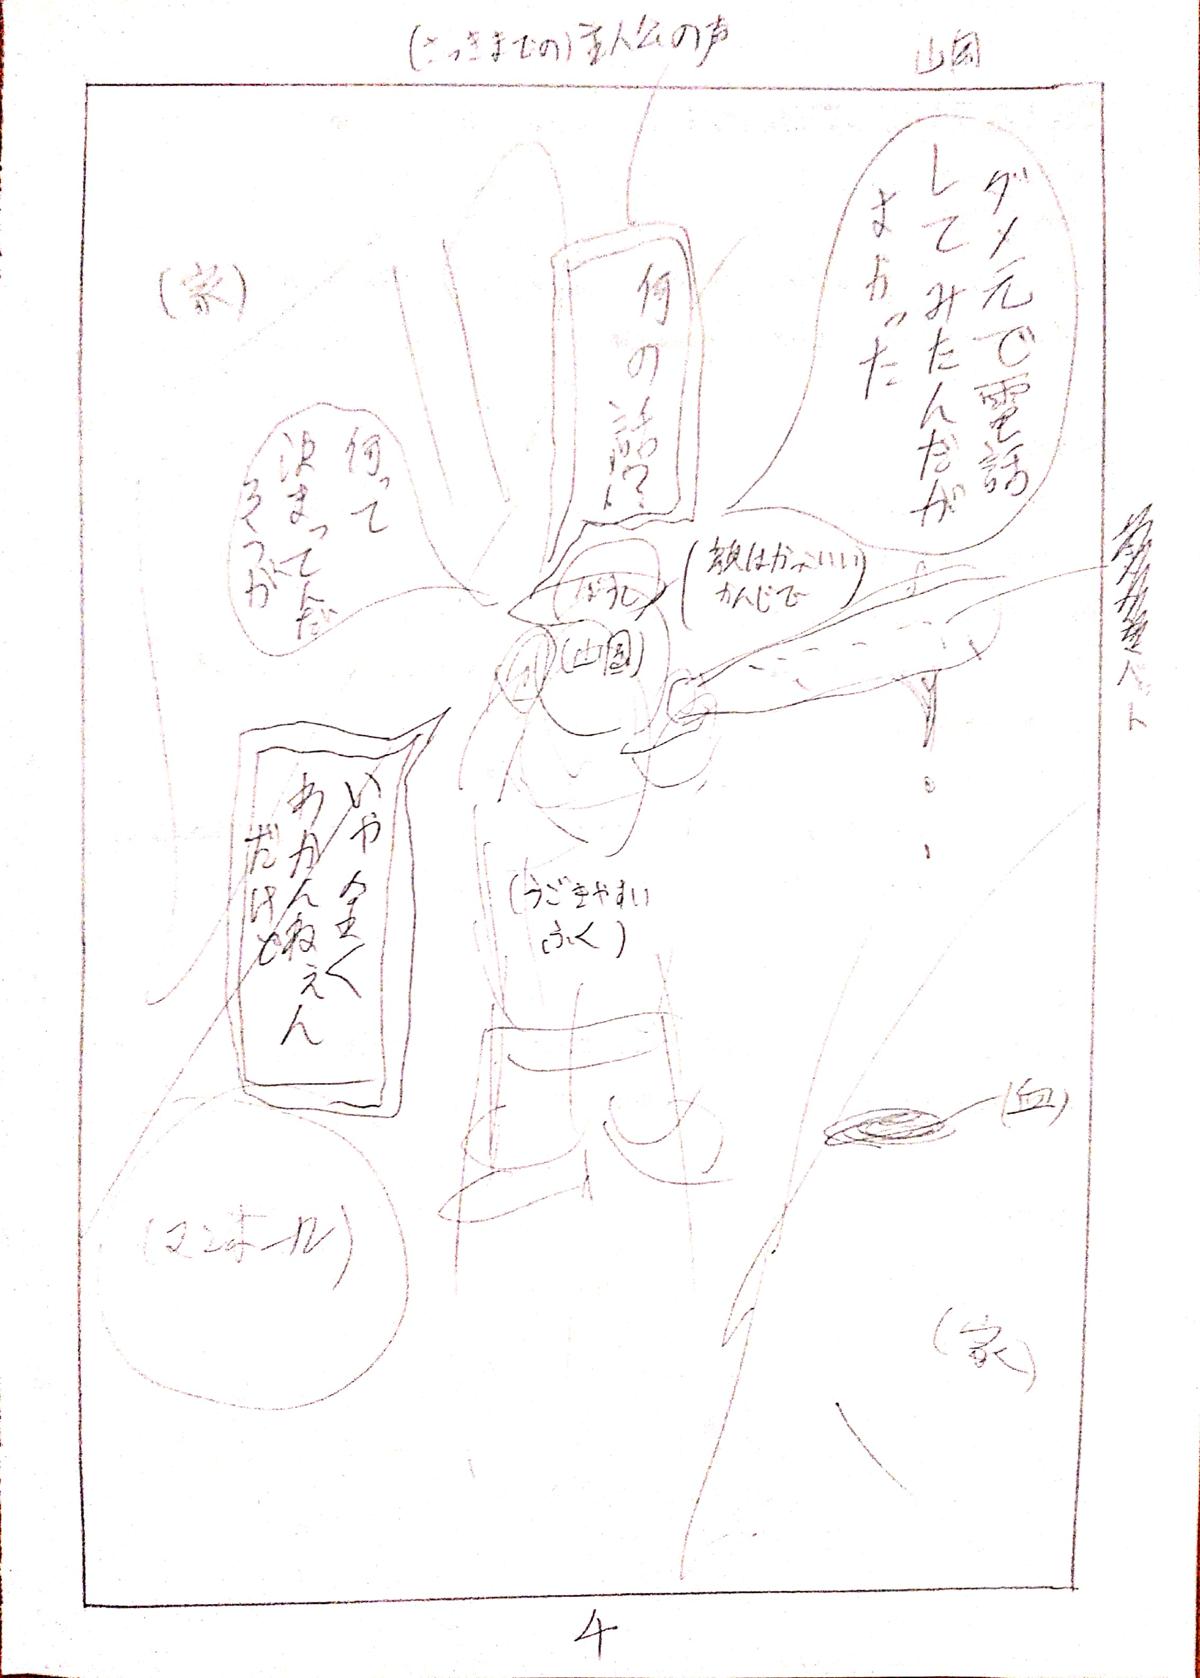 (さっきまでの)主人公の声
山岡
ダメ元で電話
してみたんだが
よかった
何の話?
(家)
何って
決まってんだ
ろうが
(顔はかわいい
かんじで)
(山岡)
バット
いや全く
わかんねえん
だけど
(うごきやすい
ふく)
(血)
(マンホール)
(家)
4